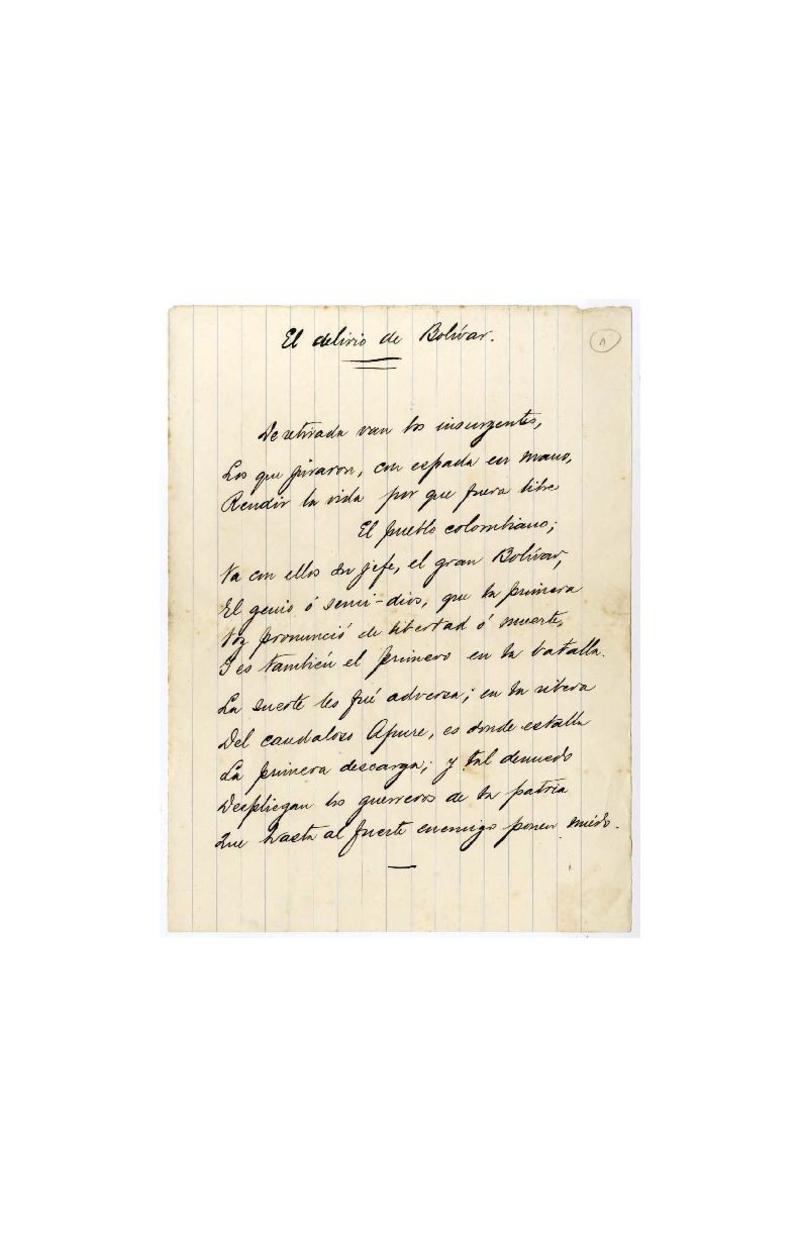 El delirio de Bolívar.
1
De retirada van los insurgentes,
Los que juraron, con espada en mano,
Rendir la vida por que fuera libre
El pueblo colombiano;
Va con ellos su jefe, el gran Bolívar,
El genio ó semi-dios, que la primera
Voz pronunció de libertad ó muerte,
I es también el primero en la batalla.
La suerte les fué adversa; en la ribera
Del caudaloso Apure, es donde estalla
La primera descarga; y tal denuedo
Despliegan los guerreros de la patria
Que hasta al fuerte enemigo ponen miedo.